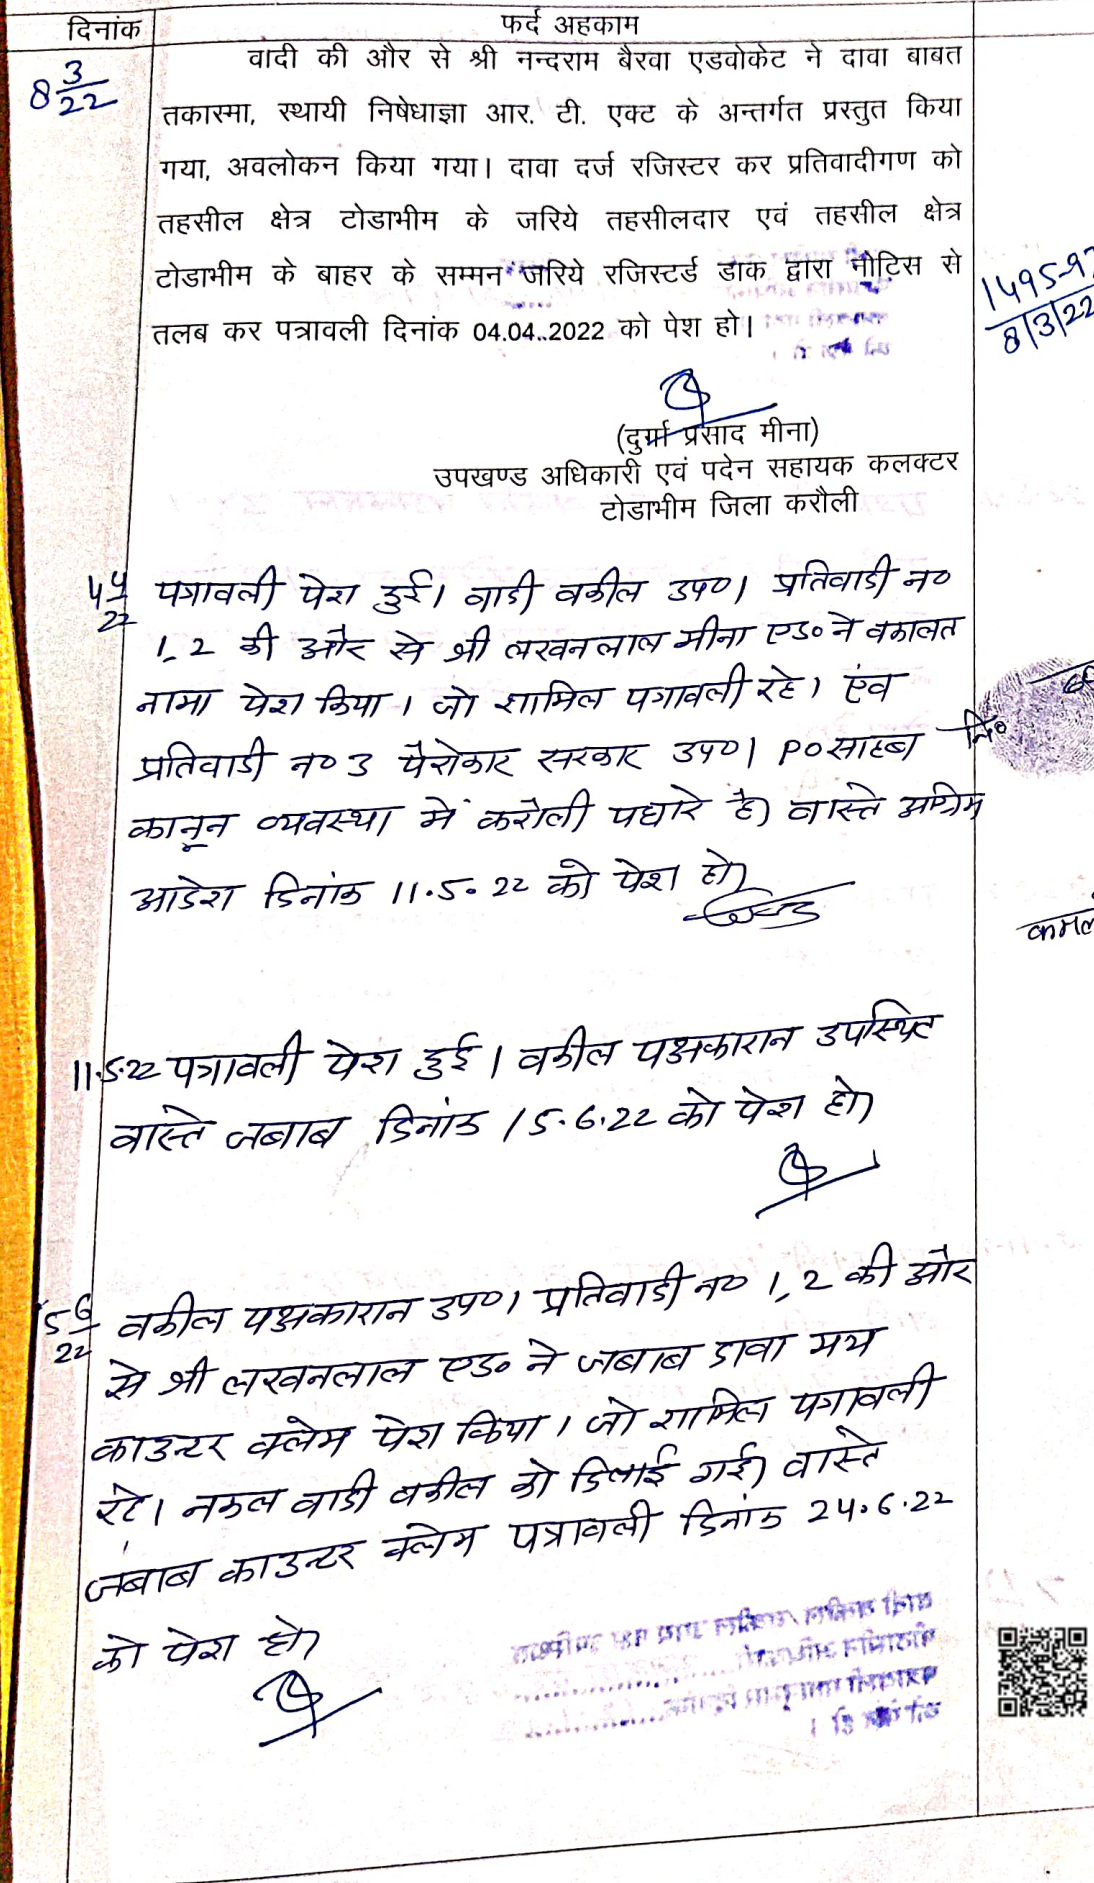 दिनांक
फर्द अहकाम
8 3/22
वादी की और से श्री नन्दराम बैरवा एडवोकेट ने दावा बाबत
तकास्मा, स्थायी निषेधाज्ञा आर. टी. एक्ट के अन्तर्गत प्रस्तुत किया
गया, अवलोकन किया गया। दावा दर्ज रजिस्टर कर प्रतिवादीगण को
तहसील क्षेत्र टोडाभीम के जरिये तहसीलदार एवं तहसील क्षेत्र
टोडाभीम के बाहर के सम्मन जरिये रजिस्टर्ड डाक द्वारा नोटिस से
तलब कर पत्रावली दिनांक 04.04..2022 को पेश हो।
1495-97
8/3/22
(दुर्गा प्रसाद मीना)
उपखण्ड अधिकारी एवं पदेन सहायक कलक्टर
टोडाभीम जिला करौली
4 4/22 पत्रावली पेश हुई। वादी वकील उप०। प्रतिवादी न०
1,2 की और से श्री लखनलाल मीना एड० ने वकालत
नामा पेश किया। जो शामिल पत्रावली रहे। एंव
प्रतिवादी न० 3 पैरोकार सरकार उप०। PO साहब
कानून व्यवस्था में करौली पधारे है। वास्ते अग्रिम
आदेश दिनांक 11.5.22 को पेश हो।
11.5.22 पत्रावली पेश हुई। वकील पक्षकारान उपस्थित
वास्ते जबाब दिनांक 15.6.22 को पेश हो।
15 6/22 वकील पक्षकारान उप०। प्रतिवादी न० 1,2 की और
से श्री लखनलाल एड० ने जबाब दावा मय
काउन्टर क्लेम पेश किया। जो शामिल पत्रावली
रहे। नकल वादी वकील को दिलाई गई। वास्ते
जबाब काउन्टर क्लेम पत्रावली दिनांक 24.6.22
को पेश हो।